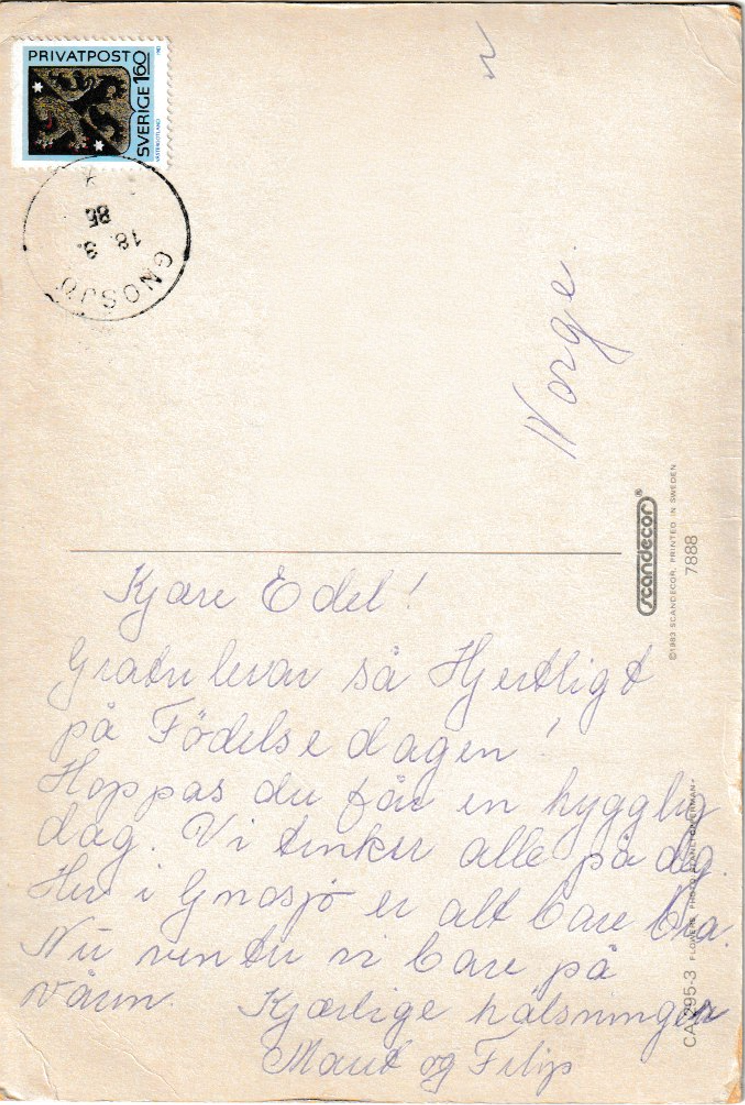 PRIVATPOST
SVERIGE 160
VÄSTERGÖTLAND
GNOSJÖ
18. 3.
85
Norge.
scandecor®
©1983 SCANDECOR, PRINTED IN SWEDEN
7888
CA 295-3 FLOWERS PHOTO
Kjære Edel!
Gratulerar så Hjertligt
på Födelsedagen!
Hoppas du får en hygglig
dag. Vi tenker alle på dig.
Her i Gnosjö er alt bare bra.
Nu venter vi bare på
vårin.
Kjærlige hälsninger
Marit og Filip